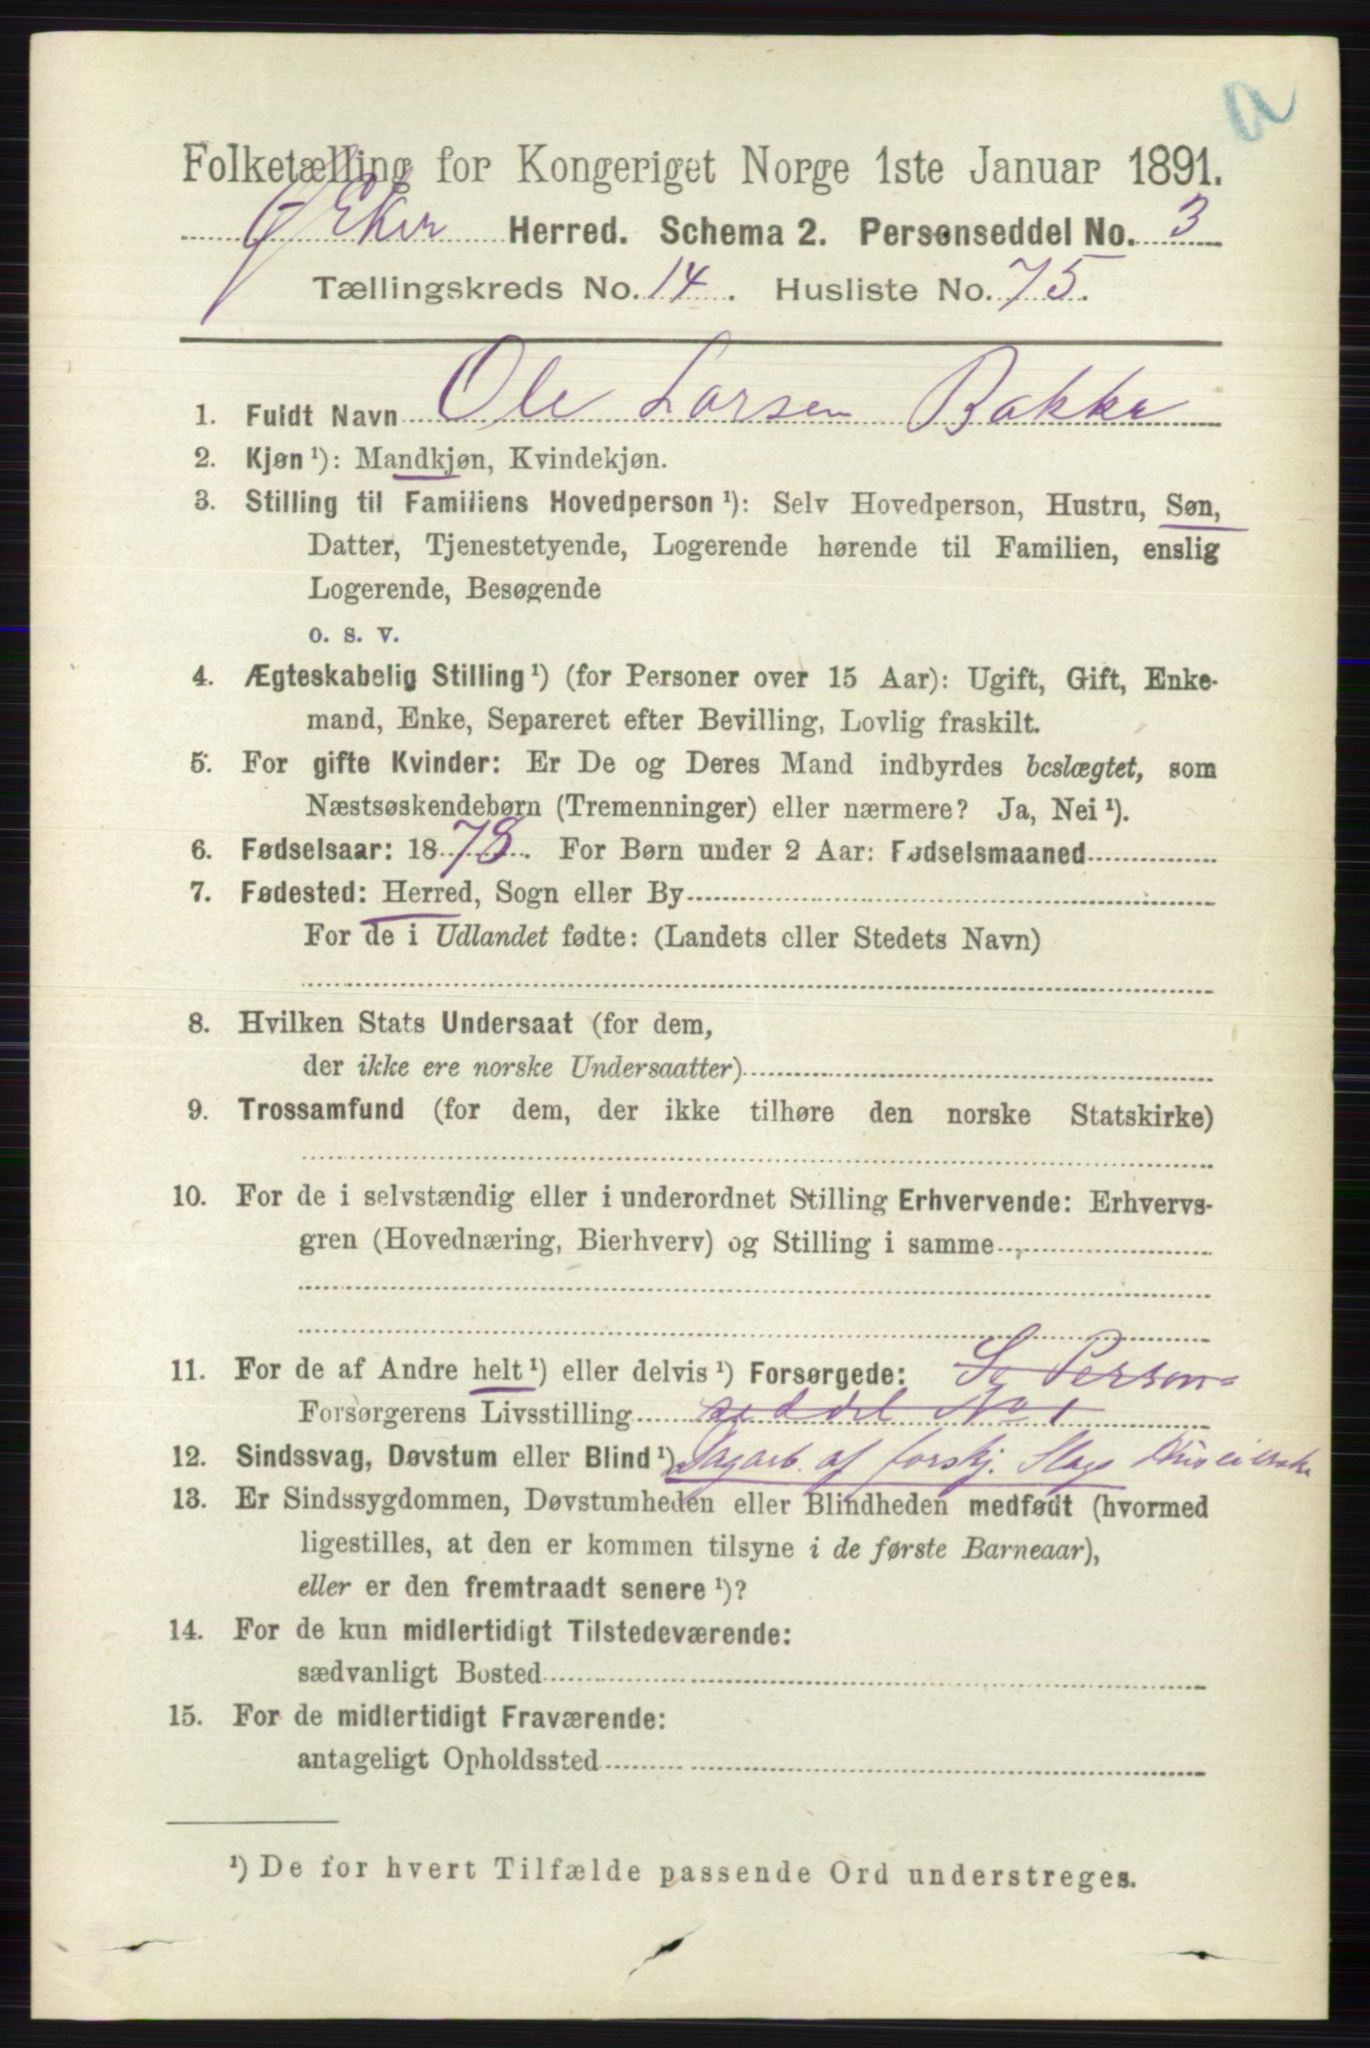 a
Folketælling for Kongeriget Norge 1ste Januar 1891.
Ø Eker Herred. Schema 2. Personseddel No. 3
Tællingskreds No. 14. Husliste No. 75.
1. Fuldt Navn Ole Larsen Bakke
2. Kjøn ¹): Mandkjøn, Kvindekjøn.
3. Stilling til Familiens Hovedperson ¹): Selv Hovedperson, Hustru, Søn,
Datter, Tjenestetyende, Logerende hørende til Familien, enslig
Logerende, Besøgende
o. s. v.
4. Ægteskabelig Stilling ¹) (for Personer over 15 Aar): Ugift, Gift, Enke-
mand, Enke, Separeret efter Bevilling, Lovlig fraskilt.
5. For gifte Kvinder: Er De og Deres Mand indbyrdes beslægtet, som
Næstsøskendebørn (Tremenninger) eller nærmere? Ja, Nei ¹).
6. Fødselsaar: 1878. For Børn under 2 Aar: Fødselsmaaned
7. Fødested: Herred, Sogn eller By
For de i Udlandet fødte: (Landets eller Stedets Navn)
8. Hvilken Stats Undersaat (for dem,
der ikke ere norske Undersaatter)
9. Trossamfund (for dem, der ikke tilhøre den norske Statskirke)
10. For de i selvstændig eller i underordnet Stilling Erhvervende: Erhvervs-
gren (Hovednæring, Bierhverv) og Stilling i samme
11. For de af Andre helt ¹) eller delvis ¹) Forsørgede: Se Person-
Forsørgerens Livsstilling seddel No 1
12. Sindssvag, Døvstum eller Blind ¹). Dagarb. af forskj. Slags
13. Er Sindssygdommen, Døvstumheden eller Blindheden medfødt (hvormed
ligestilles, at den er kommen tilsyne i de første Barneaar),
eller er den fremtraadt senere ¹)?
14. For de kun midlertidigt Tilstedeværende:
sædvanligt Bosted
15. For de midlertidigt Fraværende:
antageligt Opholdssted
¹) De for hvert Tilfælde passende Ord understreges.